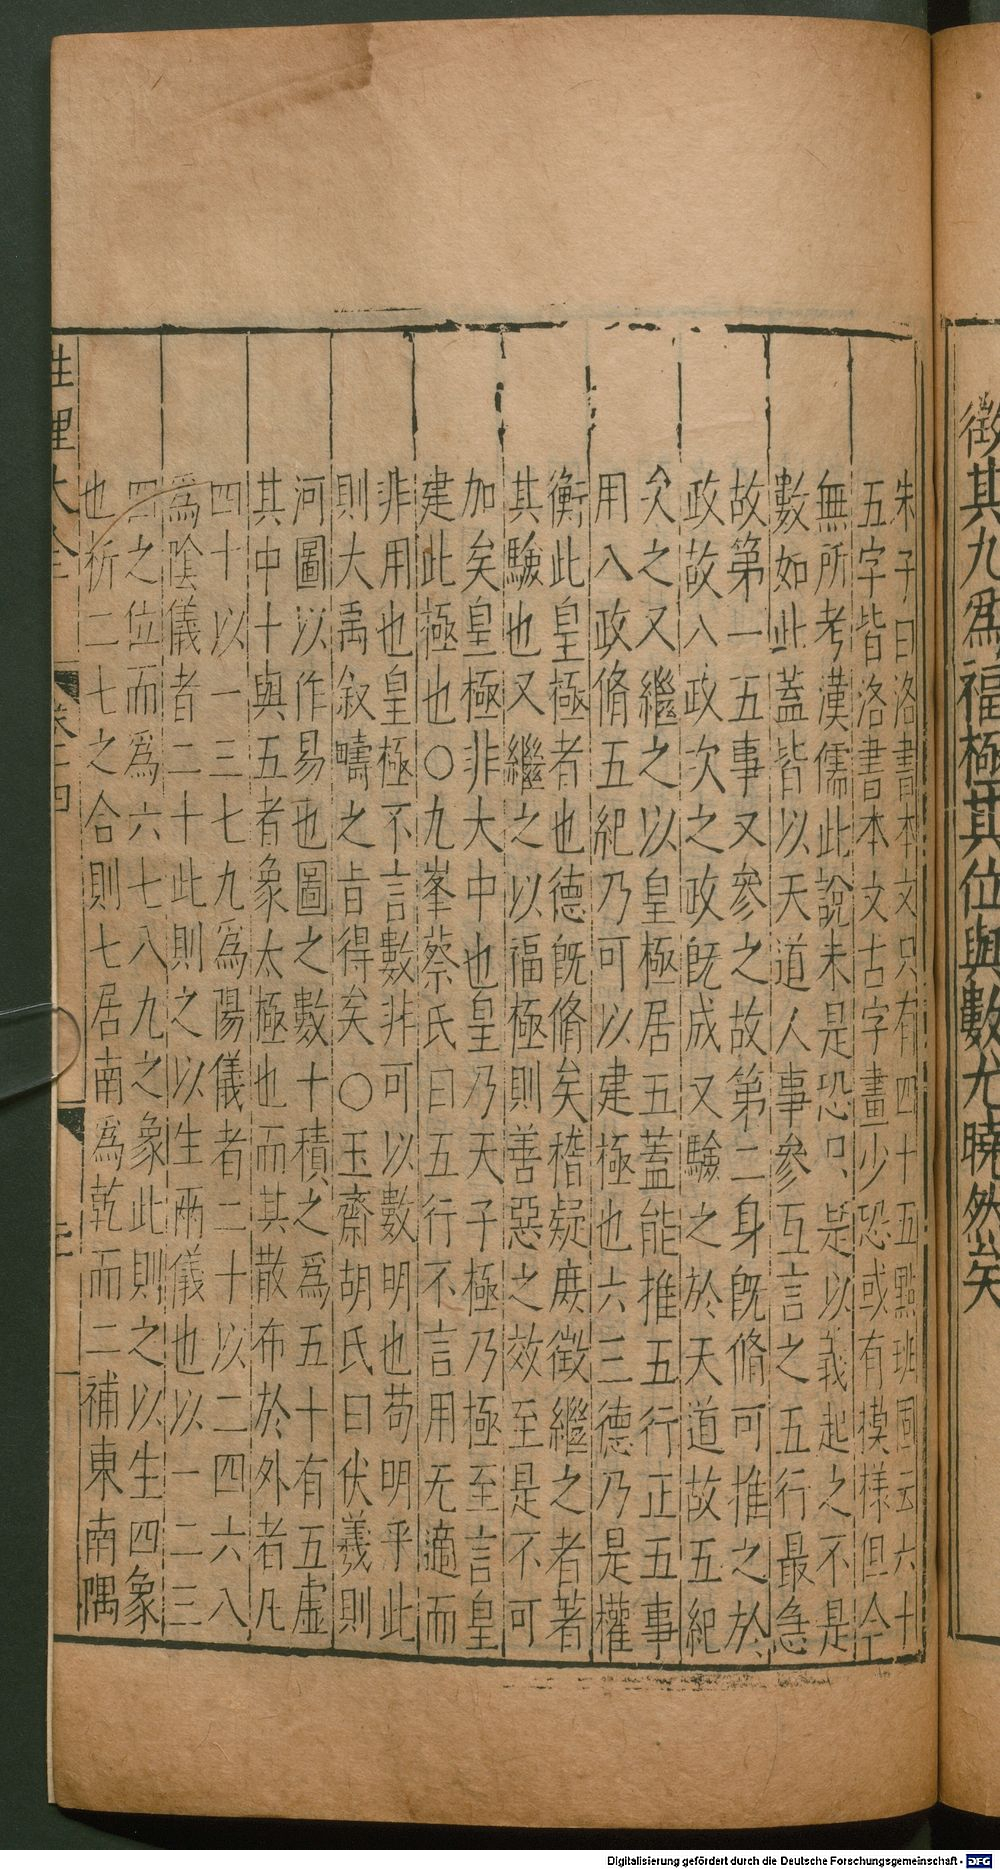 徵其九爲福極其位與數尤曉然矣
朱子曰洛書本文只有四十五點班固云六十
五字皆洛書本文古字畫少恐或有模樣但今
無所考漢儒此說未是恐只是以義起之不是
數如此蓋皆以天道人事參互言之五行最急
故第一五事又參之故第二身旣脩可推之於
政故八政次之政旣成又驗之於天道故五紀
次之又繼之以皇極居五蓋能推五行正五事
用八政脩五紀乃可以建極也六三德乃是權
衡此皇極者也德旣脩矣稽疑庶徵繼之者著
其驗也又繼之以福極則善惡之效至是不可
加矣皇極非大中也皇乃天子極乃極至言皇
建此極也○九峯蔡氏曰五行不言用无適而
非用也皇極不言數非可以數明也苟明乎此
則大禹叙疇之旨得矣○玉齋胡氏曰伏羲則
河圖以作易也圖之數十積之爲五十有五虛
其中十與五者象太極也而其散布於外者凡
四十以一三七九爲陽儀者二十以二四六八
爲陰儀者二十此則之以生兩儀也以一二三
四之位而爲六七八九之象此則之以生四象
也析二七之合則七居南爲乾而二補東南隅
性理大全
卷十四
Digitalisierung gefördert durch die Deutsche Forschungsgemeinschaft - DFG